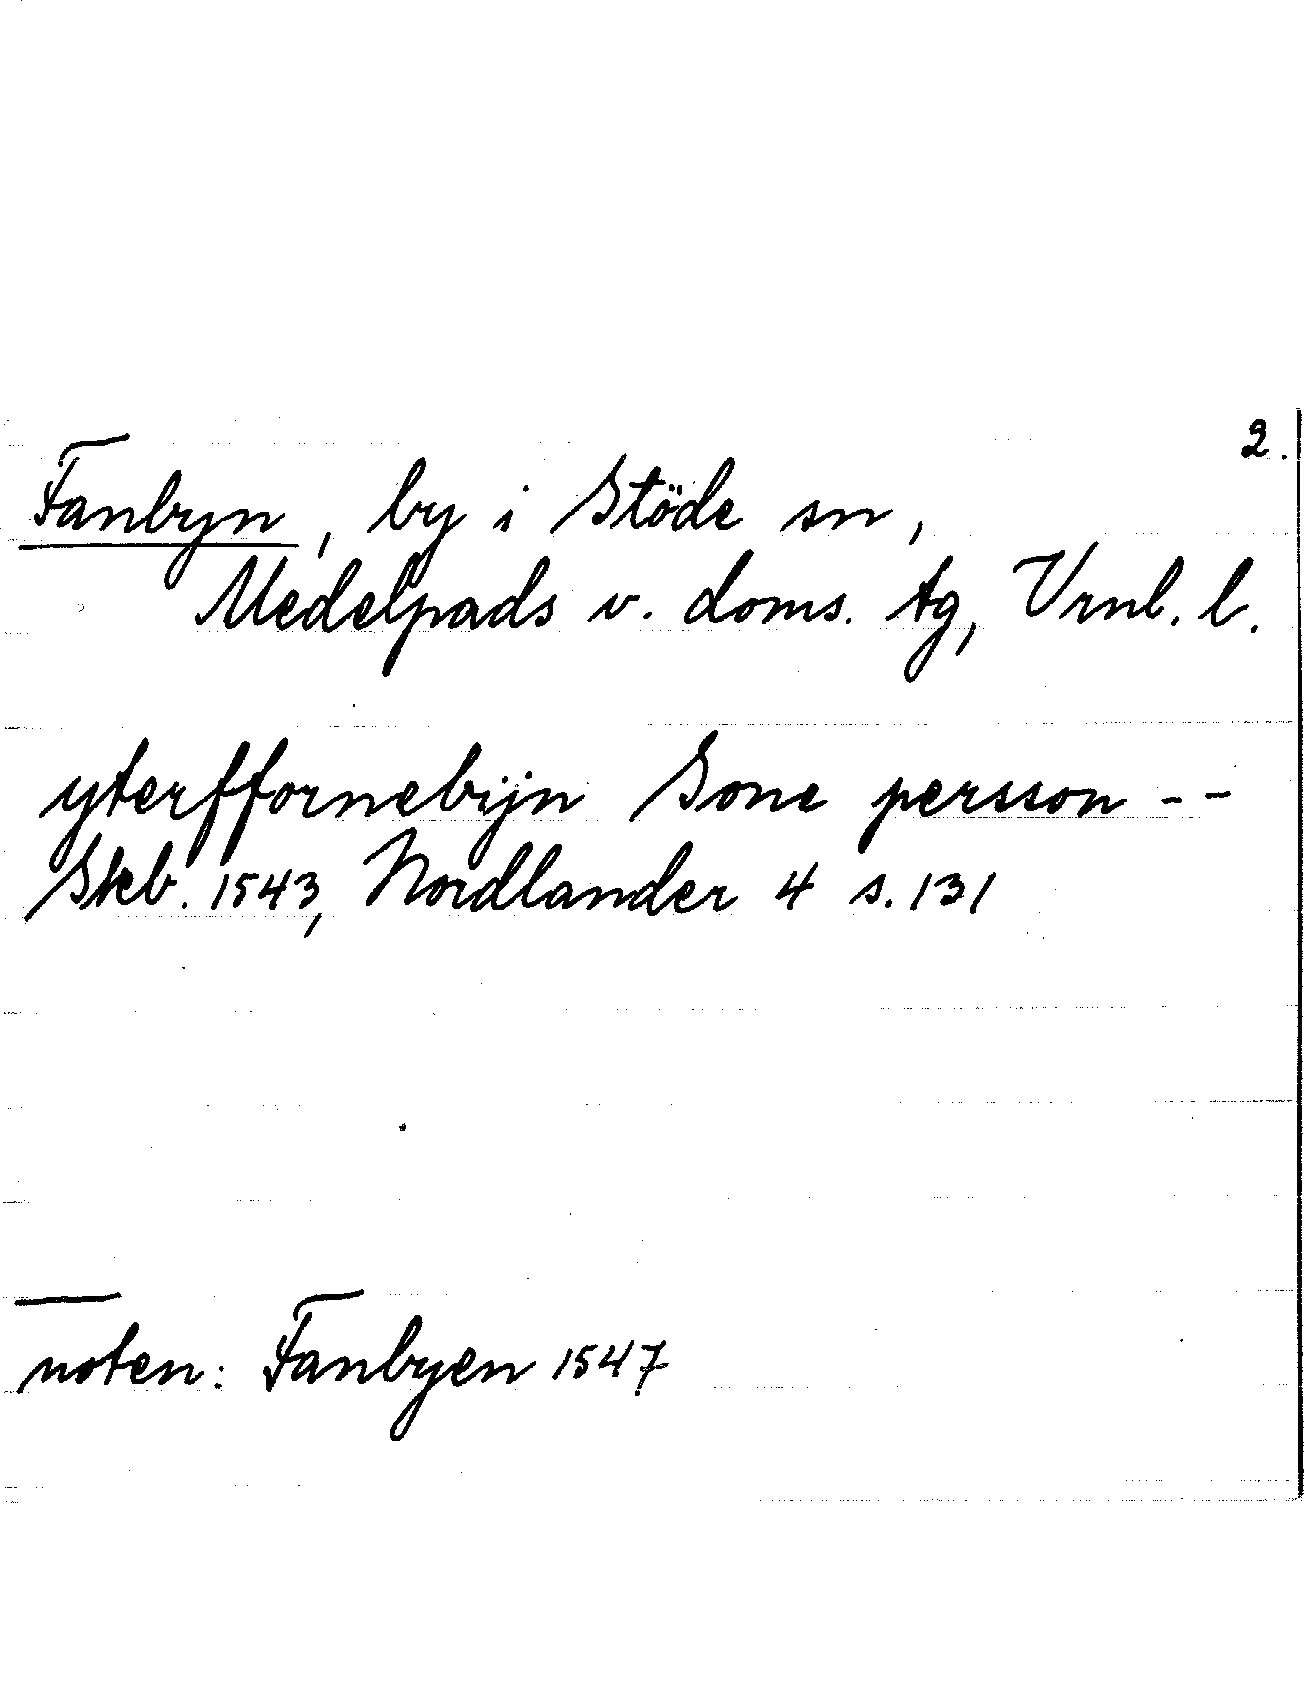 2.
Fanbyn, by i Stöde sn,
Medelpads v. doms. tg, Vrnl. l.
yterffornebijn Sone persson --
Skb. 1543, Nordlander 4 s. 131
noten: Fanbyen 1547